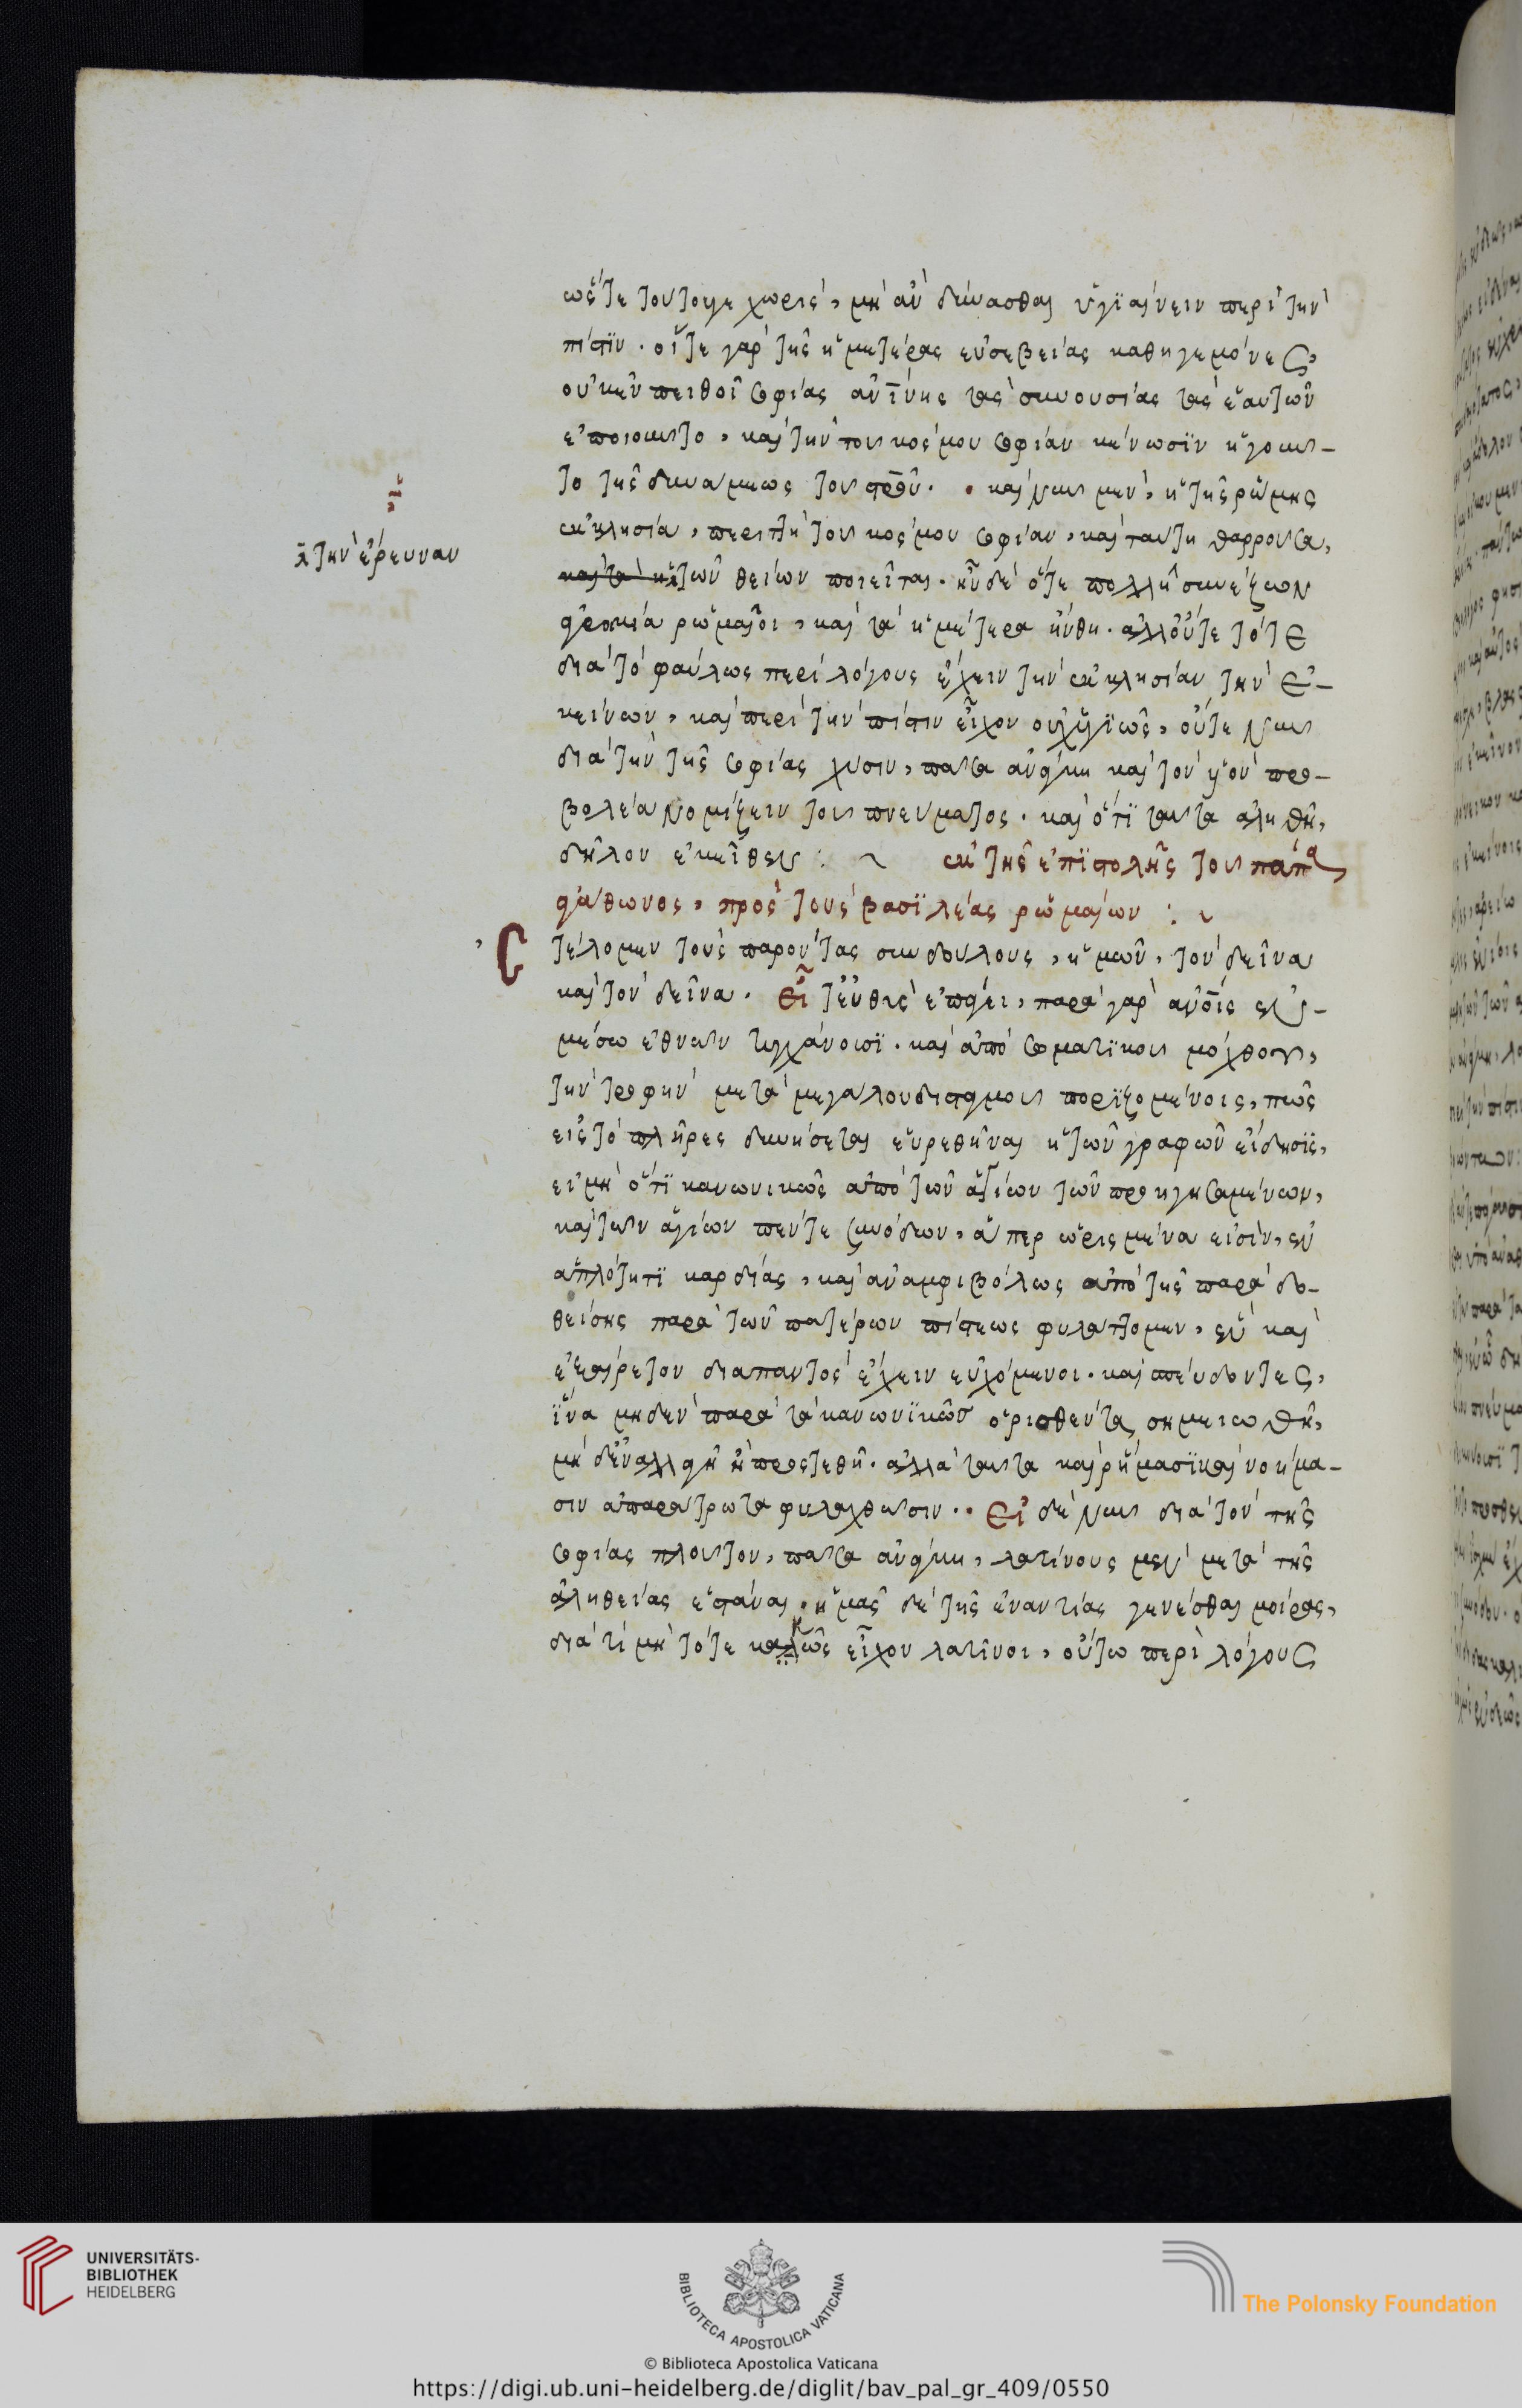 ὥς τε τούτου γε χωρὶς, μὴ ἂν δύνασθαι ὑγιαίνειν περὶ τὴν
πίστιν. οἵ τε γὰρ τῆς ἡμετέρας εὐσεβείας καθηγεμόνες,
οὐκ ἐν πειθοῖ σοφίας ἀν̅ί̅νης τὰς συνουσίας τὰς ἑαυτῶν
ἐποιοῦντο, καὶ τὴν τοῦ κόσμου σοφίαν κένωσιν ἡγοῦν-
το τῆς δυνάμεως τοῦ στ̅ρ̅οῦ. καὶ νῦν μὲν, ἡ τῆς ῥώμης
ἐκκλησία, περιττὴ τοῦ κόσμου σοφίαν, καὶ ταύτη θαρροῦσα,
κ̀ τὴν ἔρευναν
τῶν θείων ποιεῖται. ἦν δὲ ὅτε πολλῇ συνέζων
ῥωμαῖοι, καὶ τὰ ἡμέτερα ἤνθη. ἀλλ' οὔτε τότε
διὰ τὸ φαύλως περὶ λόγους ἔχειν τὴν ἐκκλησίαν τὴν ἐ-
κείνων, καὶ περὶ τὴν πίστιν εἶχον οὐχ ὑγιῶς, οὔτε νῦν
διὰ τὴν τῆς σοφίας χύσιν, πᾶσα ἀνάγκη καὶ τὸν υἱὸν προ-
βολέα νομίζειν τοῦ πνεύματος. καὶ ὅτι ταῦτα ἀληθῆ,
δῆλον ἐκεῖθεν : ~ ἐκ τῆς ἐπιστολῆς τοῦ πάπα
ἀγάθωνος, πρὸς τοὺς βασιλέας ῥωμαίων : ~
Στέλομεν τοὺς παρόντας συνδούλους, ἡμῶν, τὸν δεῖνα
καὶ τὸν δεῖνα. εἶτ' εὖθις ἐπάγει, παρὰ γὰρ αὐτοῖς ἐν
μέσω ἐθνῶν τυγχάνουσι. καὶ ἀπὸ σωματικοῦ μόχθου,
τὴν τροφὴν μετὰ μεγάλου δισταγμοῦ ποριζομένοις, πῶς
εἰς τὸ πλῆρες δυνήσεται εὑρεθῆναι ἡ τῶν γραφῶν εἴδησις,
εἰ μὴ ὅτι κανωνικῶς ἀπὸ τῶν ἁγίων τῶν προηγησαμένων,
καὶ τῶν ἁγίων πέντε συνόδων, ἅπερ ὡρισμένα εἰσὶν, ἐν
ἁπλότητι καρδίας, καὶ ἀναμφιβόλως ἀπὸ τῆς παραδο-
θείσης παρὰ τῶν πατέρων πίστεως φυλάττομεν, ἓν καὶ
ἐξαίρετον διαπαντὸς ἔχειν εὐχόμενοι. καὶ σπεύδοντες,
ἵνα μηδὲν παρὰ τὰ κανωνικῶς ὁρισθέντα, σημειωθῆ,
μὴδ' ἐναλλαγῆ ἢ προστεθῆ. ἀλλὰ ταῦτα καὶ ῥήμασι καὶ νοήμα-
σιν ἀπαράτρωτα φυλαχθῶσιν. εἰ δὲ νῦν διὰ τὸν τῆς
σοφίας πλοῦτον, πᾶσα ἀνάγκη, λατίνους μὲν μετὰ τῆς
ἀληθείας ἑστάναι. ἡμᾶς δὲ τῆς ἐναντίας γενέσθαι μοίρας,
διὰ τί μὴ τότε κακῶς εἶχον λατῖνοι, οὕτω περὶ λόγους
UNIVERSITÄTS-
BIBLIOTHEK
HEIDELBERG
BIBLIOTECA APOSTOLICA VATICANA
The Polonsky Foundation
© Biblioteca Apostolica Vaticana
https://digi.ub.uni-heidelberg.de/diglit/bav_pal_gr_409/0550